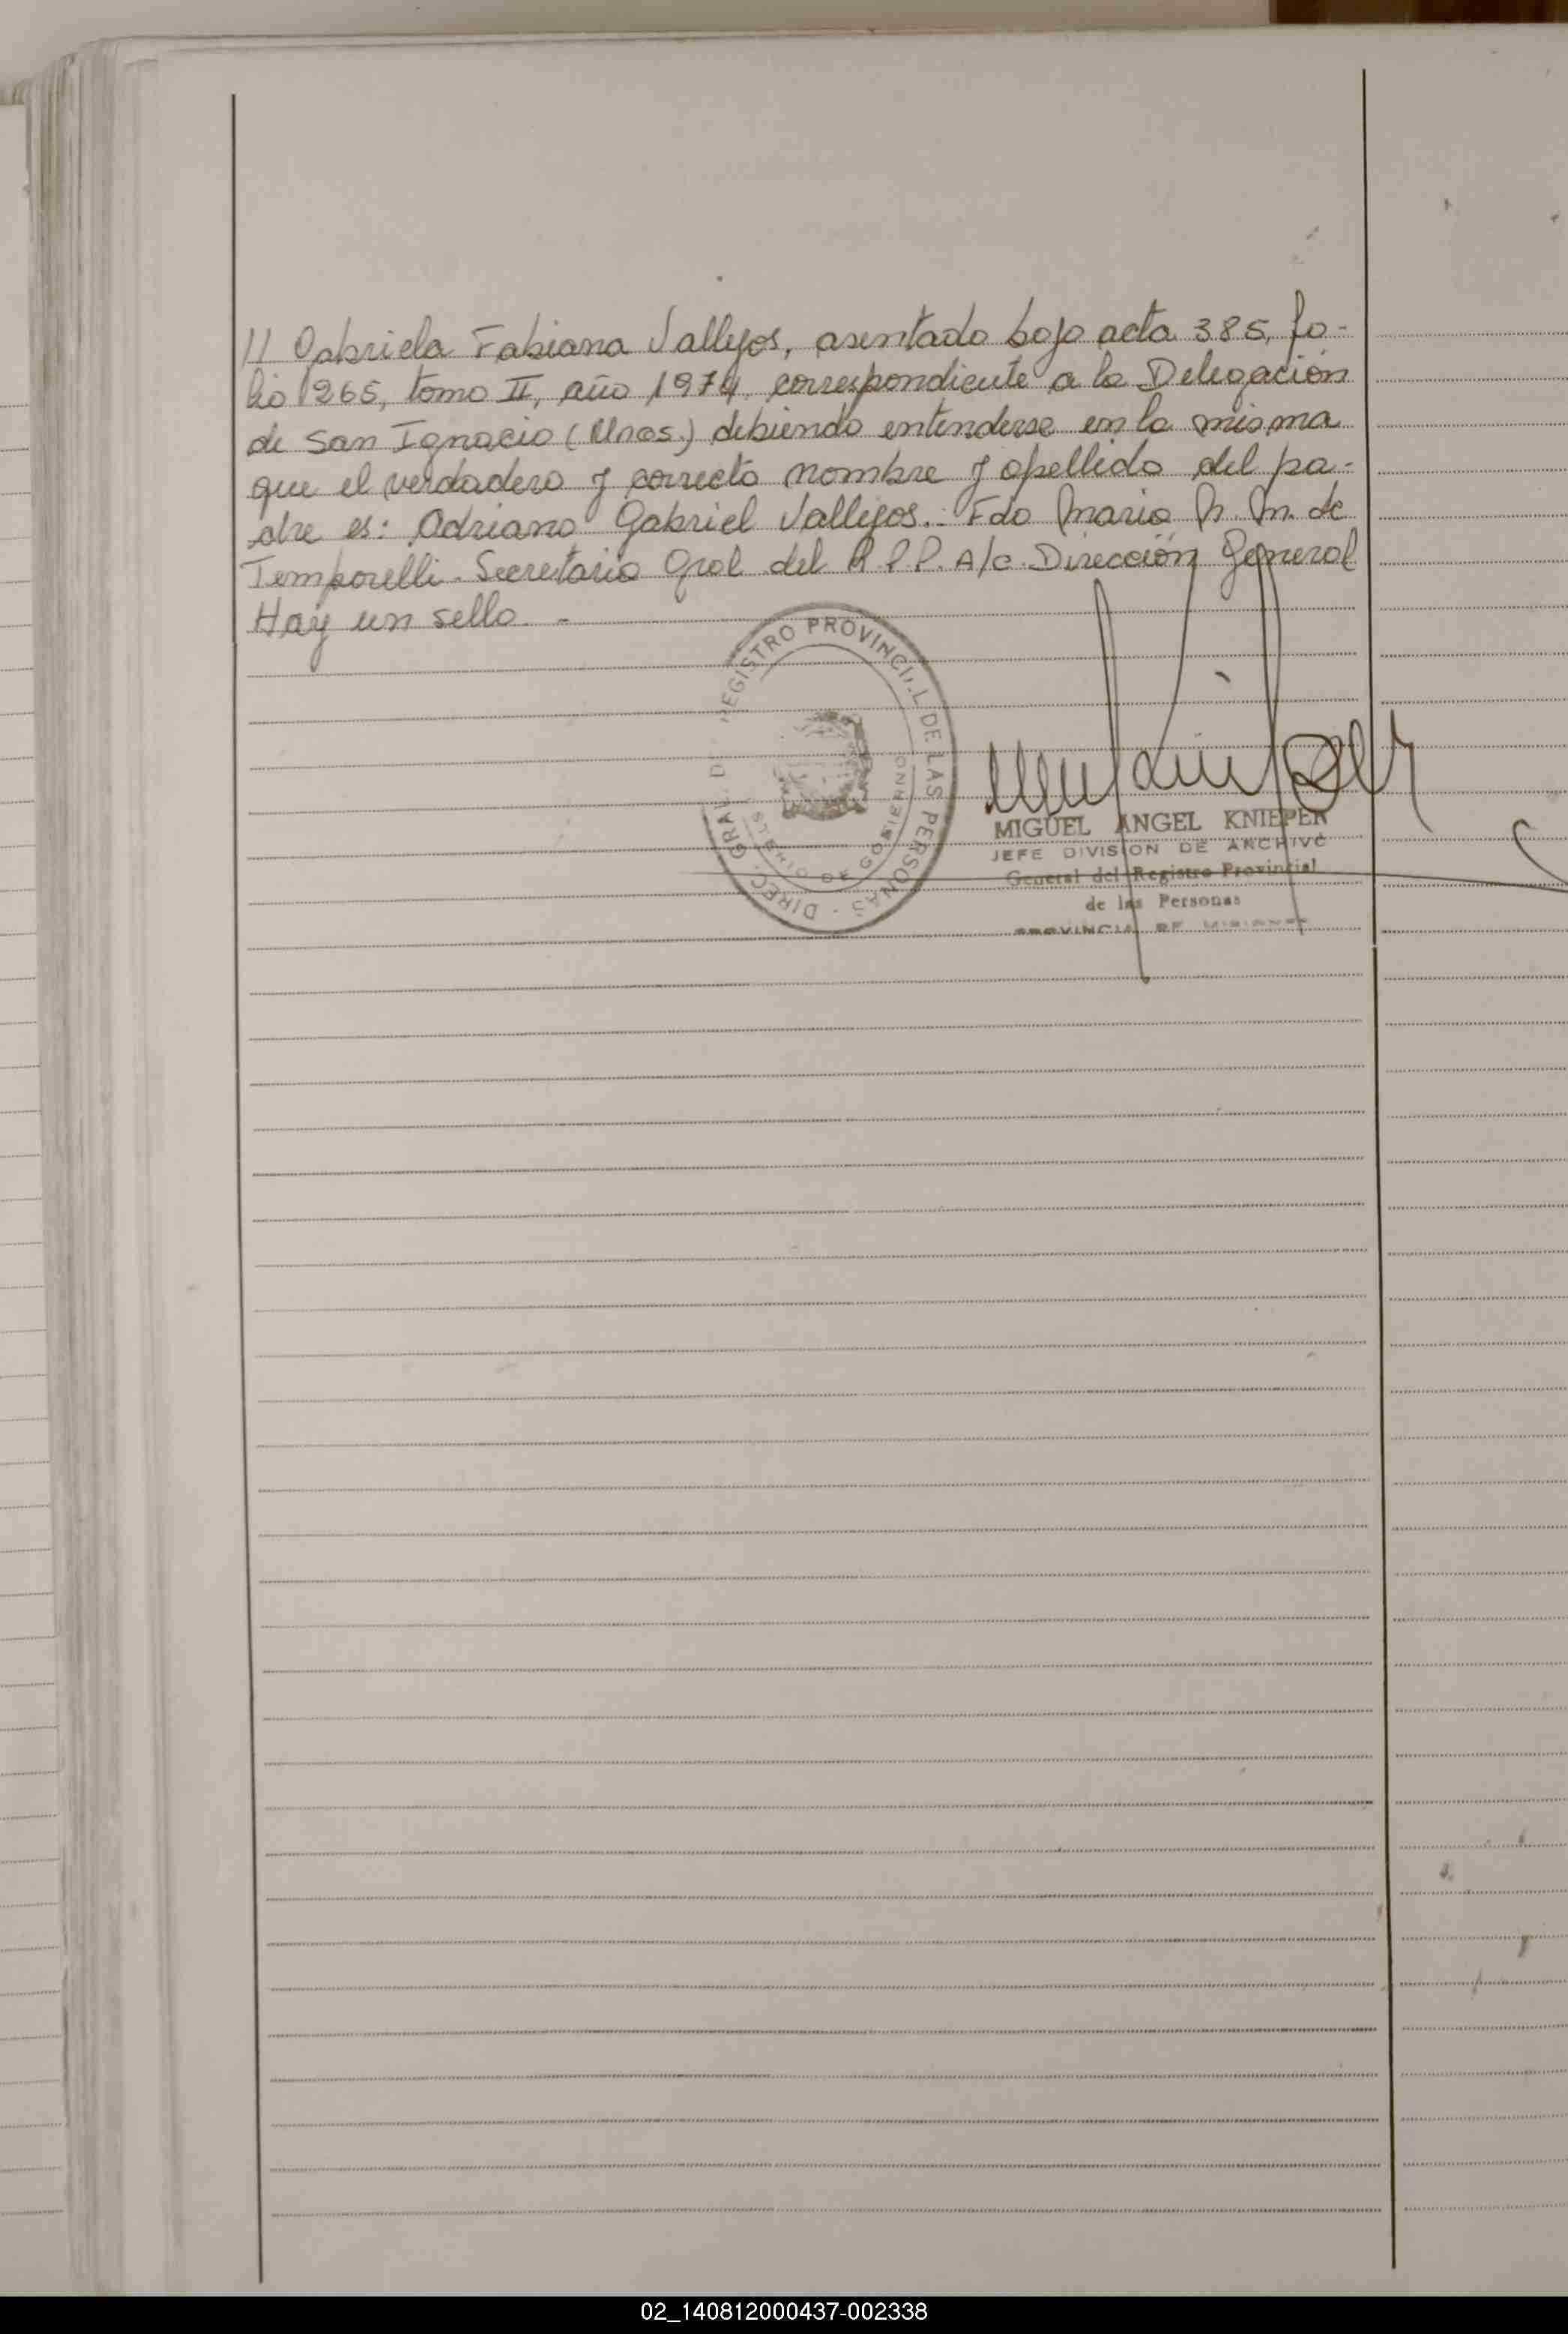 // Gabriela Fabiana Vallejos, asentado bajo acta 385, fo-
lio 265, tomo II, año 1974, correspondiente a la Delegación
de San Ignacio (Mnes.) debiendo entenderse en la misma
que el verdadero y correcto nombre y apellido del pa-
dre es: Adriano Gabriel Vallejos.- Fdo Maria M. M. de
Temporelli. Secretaria Gral del R.P.P. A/c. Dirección General
Hay un sello. -
REGISTRO PROVINCIAL DE LAS PERSONAS - DIREC. GRAL. D
DE GOBIERNO
MIGUEL ANGEL KNIEPER
JEFE DIVISION DE ARCHIVO
General del Registro Provincial
de las Personas
PROVINCIA DE MISIONES
02_140812000437-002338